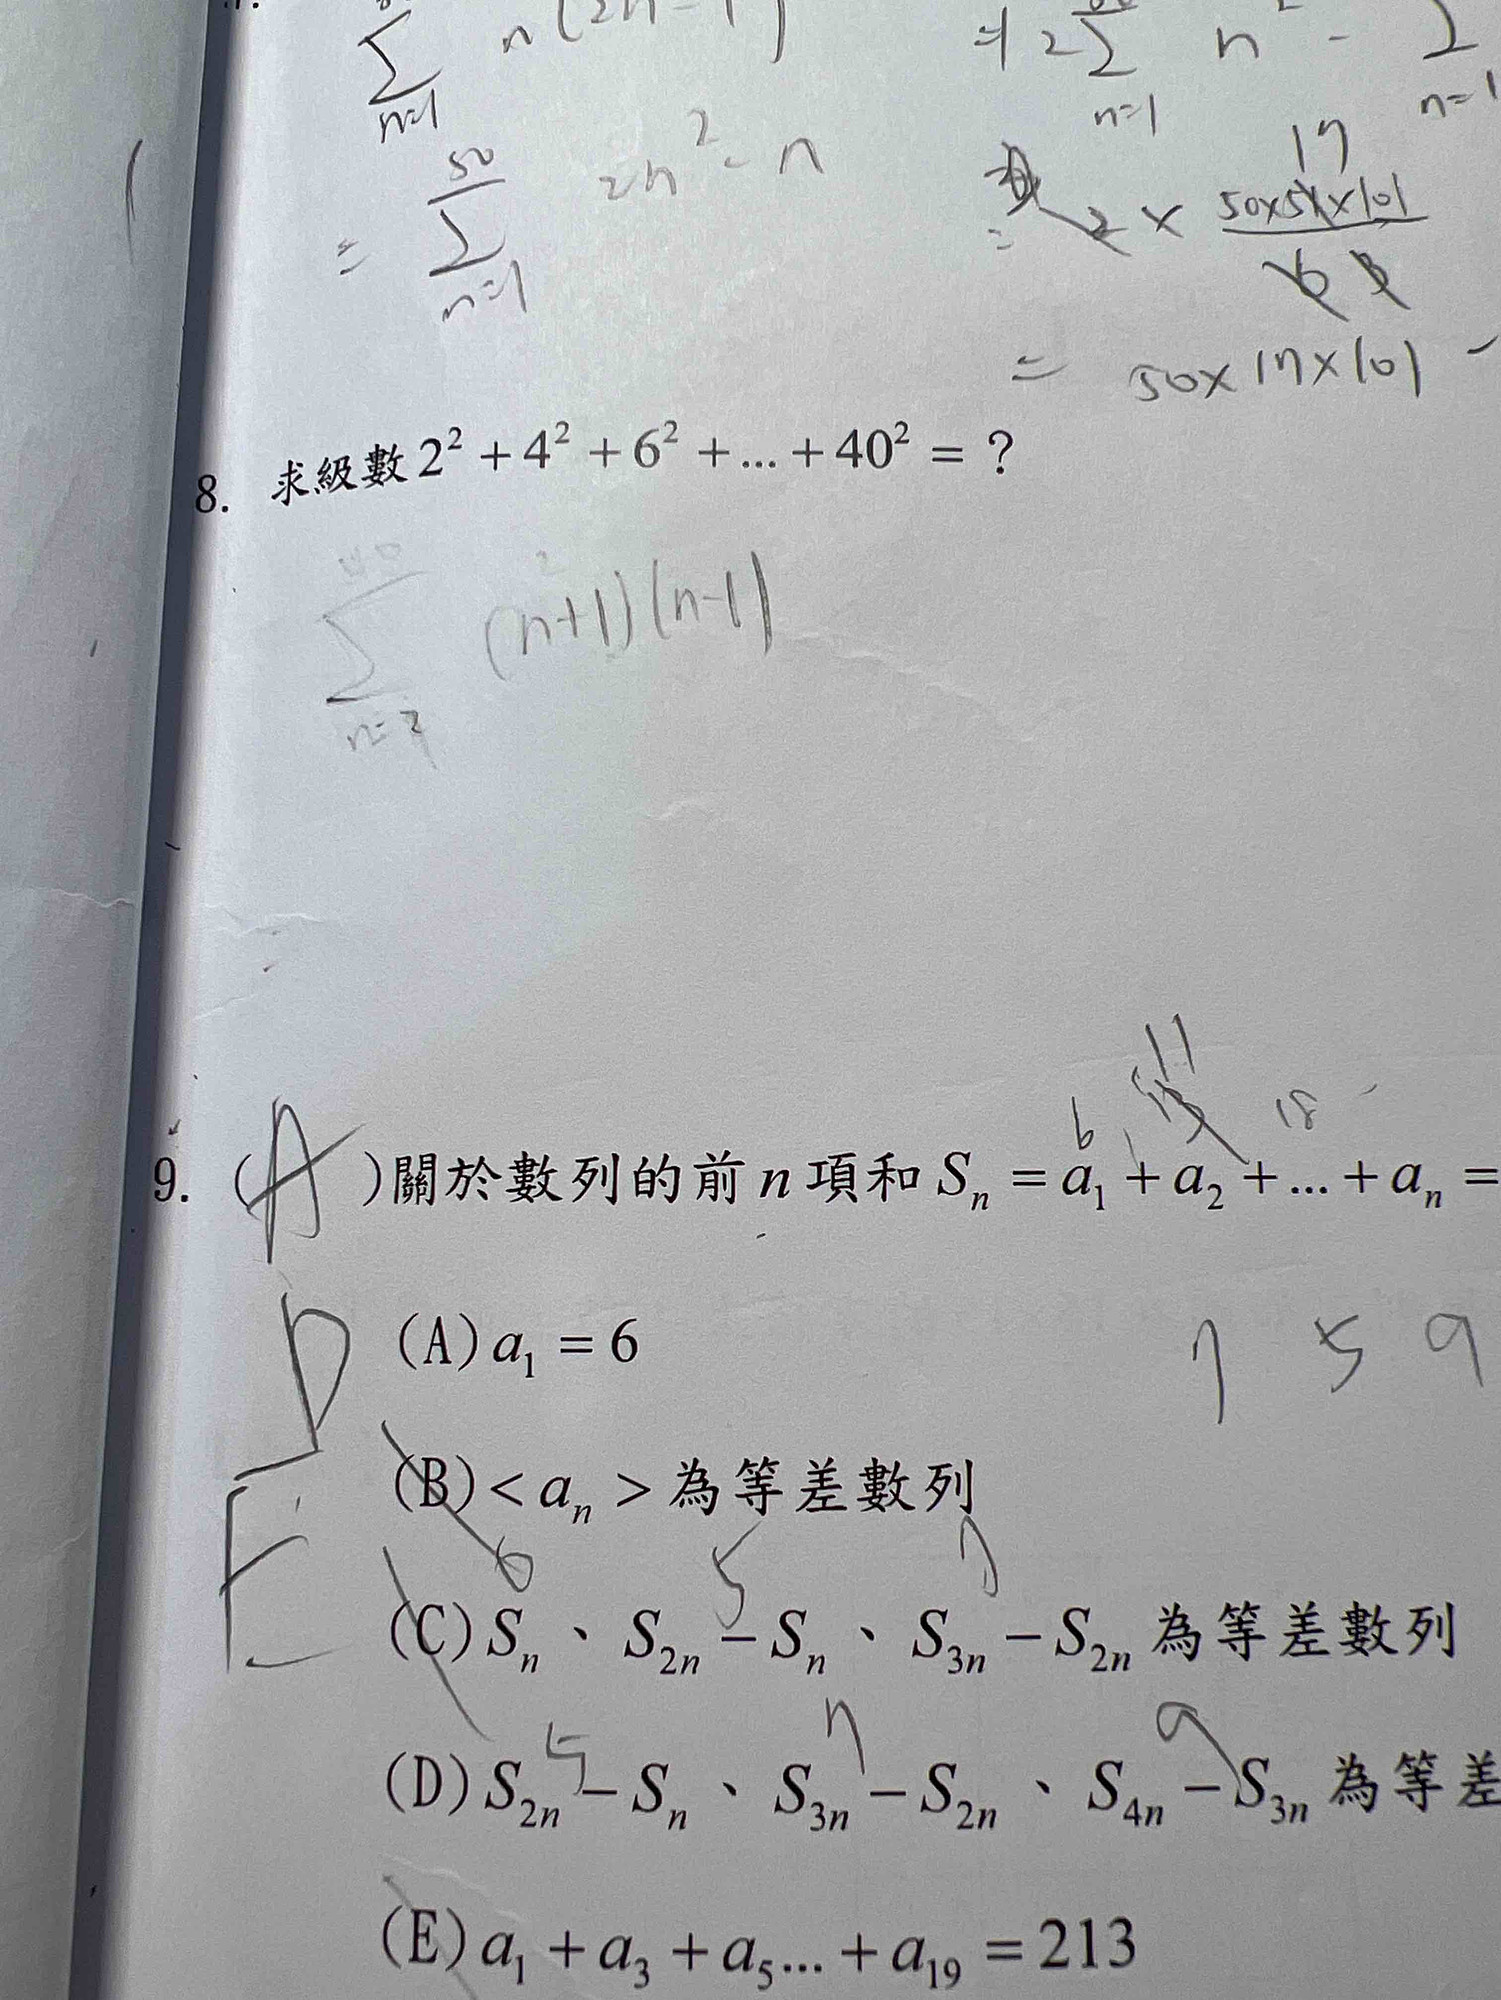 n(2n-1) = 2∑ n² - ∑
n=1 n=1 n=1
= ∑ 2n² - n = 2 × 50×51×101 17
50 n=1 6 3
= 50×17×101 -
8. 求級數 2² + 4² + 6² + ... + 40² = ?
∑ (n+1)(n-1)
6, 11 18
9. ( A )關於數列的前 n 項和 Sₙ = a₁ + a₂ + ... + aₙ =
D (A) a₁ = 6 1 5 9
(B) < aₙ > 為等差數列
E 6 5 7
(C) Sₙ、S₂ₙ − Sₙ、S₃ₙ − S₂ₙ 為等差數列
5 7 9
(D) S₂ₙ − Sₙ、S₃ₙ − S₂ₙ、S₄ₙ − S₃ₙ 為等差
(E) a₁ + a₃ + a₅... + a₁₉ = 213